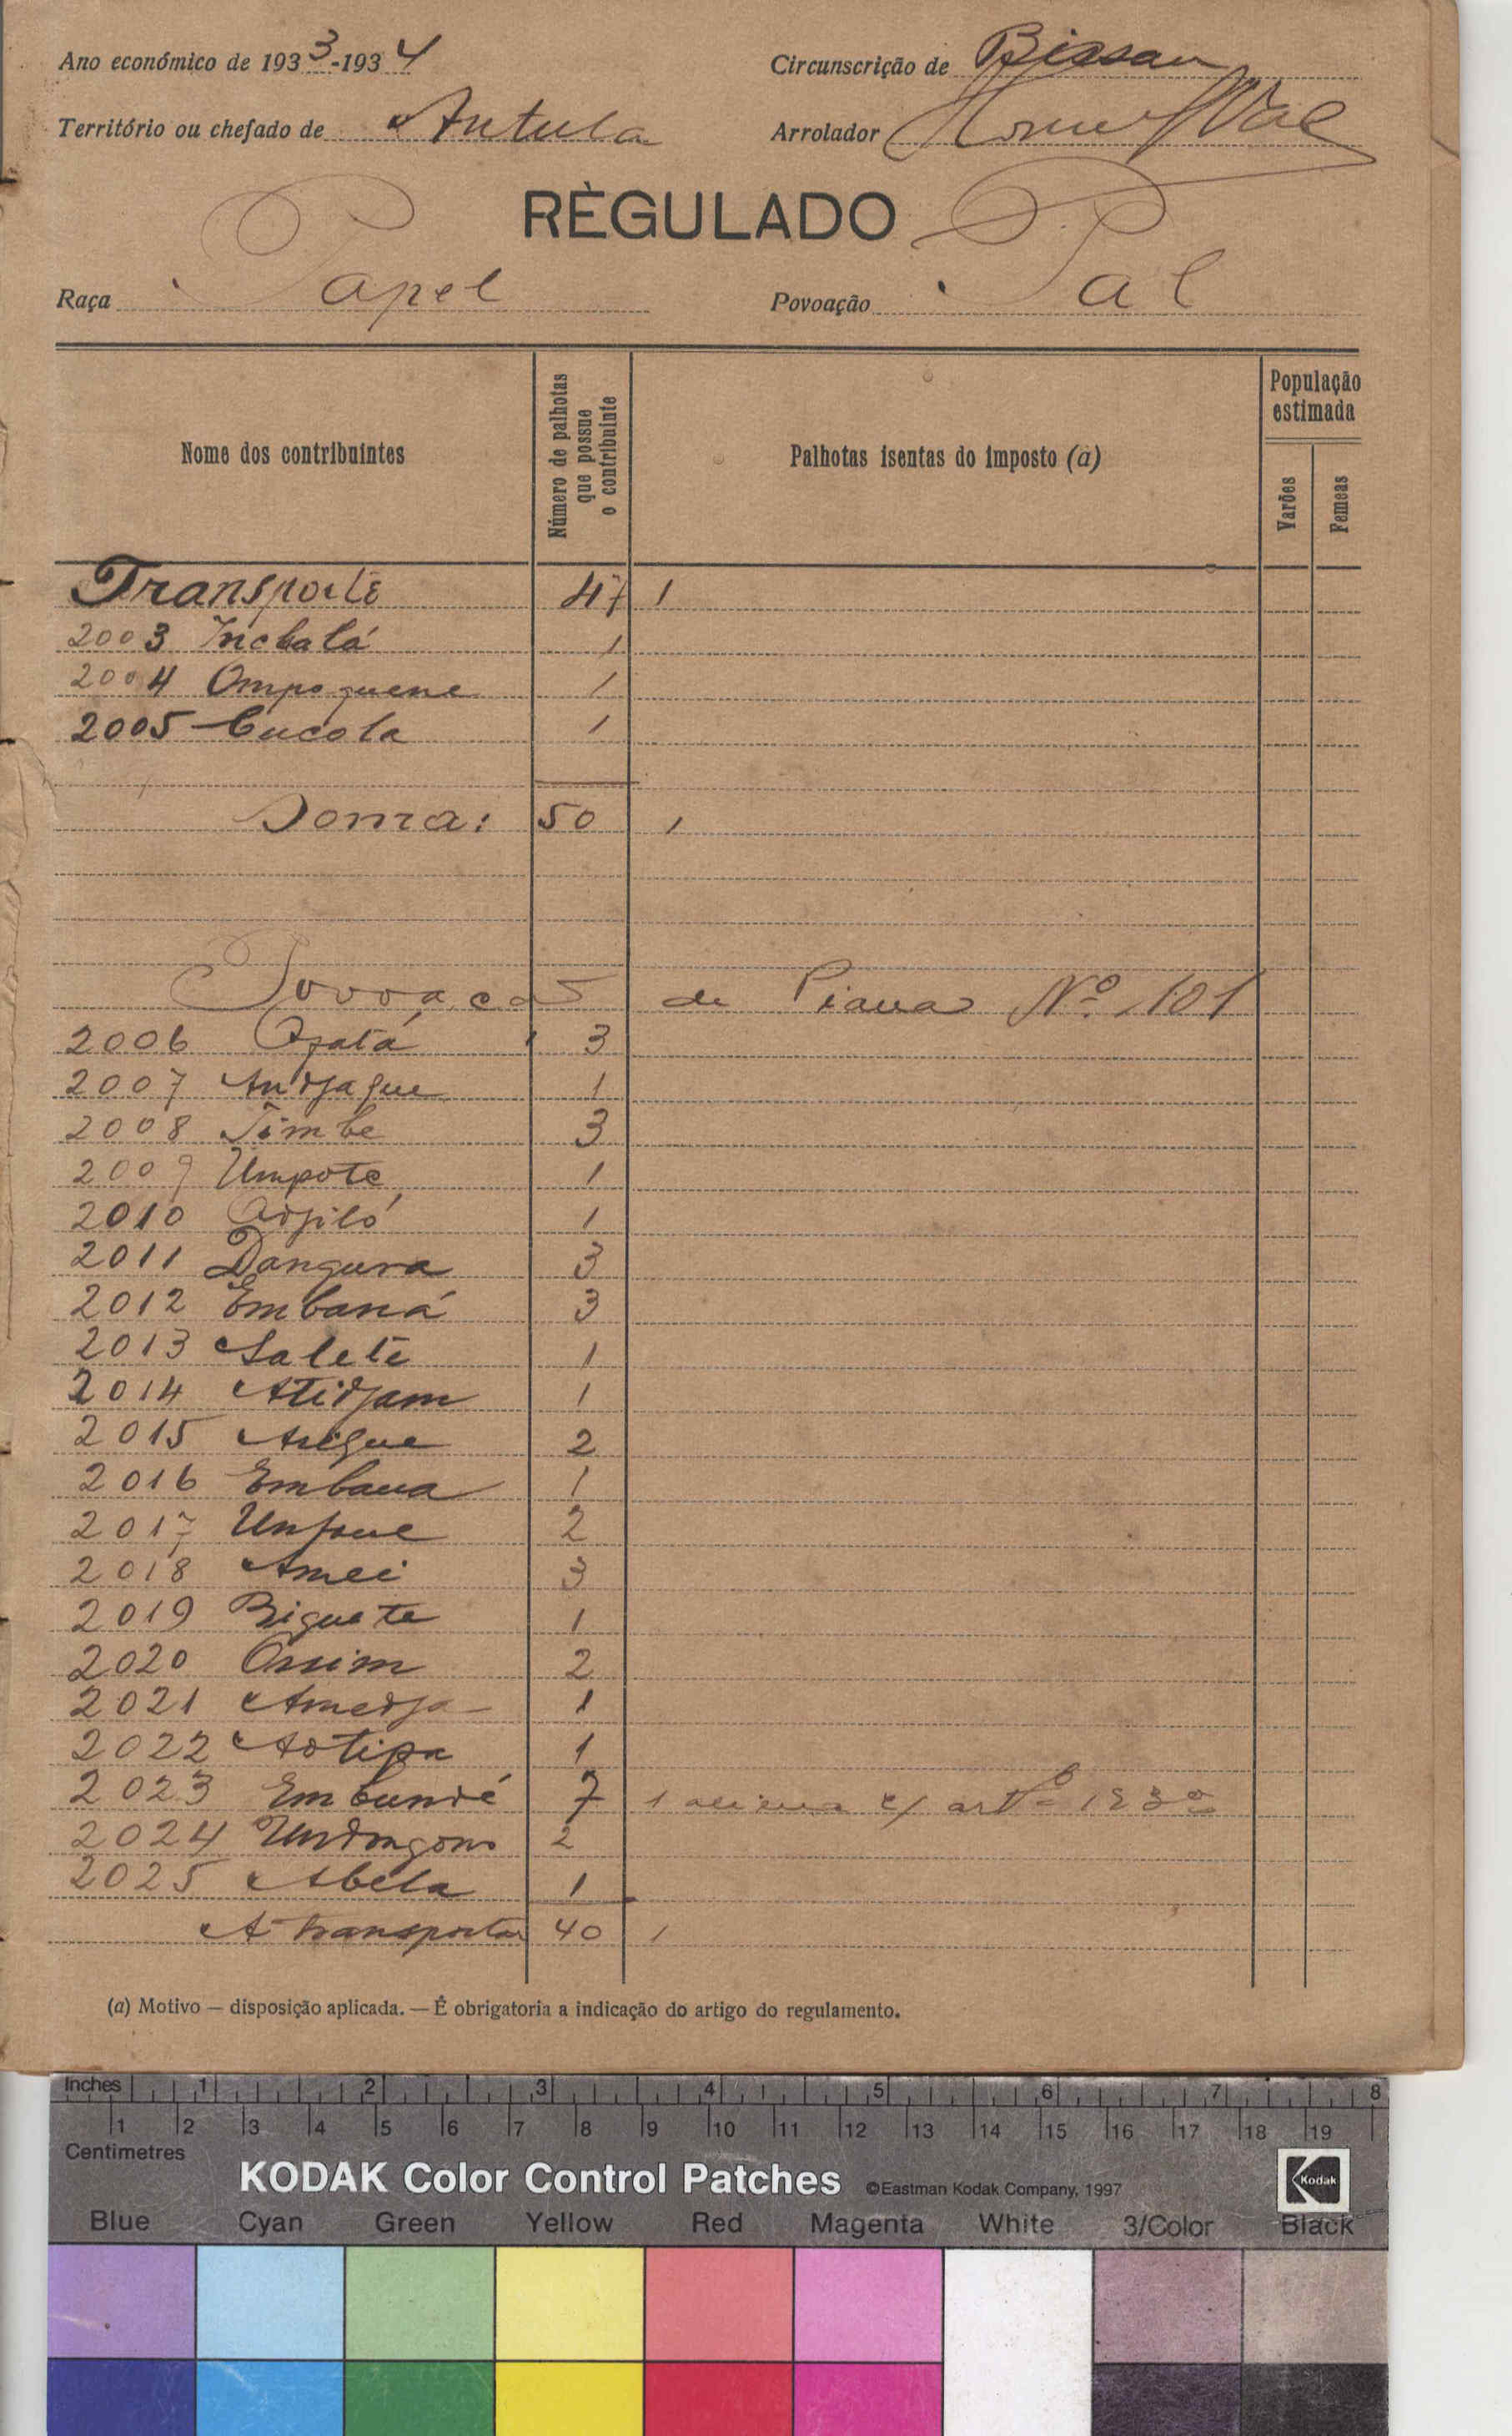 Ano económico de 1933-1934
Circunscrição de Bissau
Território ou chefado de Antula
Arrolador
RÈGULADO
Raça Papel
Povoação Pal
Nome dos contribuintes
Número de palhotas que possue o contribuinte
Palhotas isentas do imposto (a)
População estimada
Varões
Femeas
Transporte 47 1
2003 Inchalá 1
2004 Ompoquene 1
2005 Cucola 1
Soma: 50 1
Povoação de Piana Nº 101
2006 3
2007 Andjaque 1
2008 Timbe 3
2009 Umpote 1
2010 Odjiló 1
2011 Dangura 3
2012 Embaná 3
2013 Salete 1
2014 Atidjam 1
2015 2
2016 Embana 1
2017 2
2018 Amei 3
2019 Biguete 1
2020 Ossim 2
2021 Amedja 1
2022 1
2023 Embundé 7 1 c/ artº
2024 2
2025 Abéla 1
A transportar 40 1
(a) Motivo — disposição aplicada. — É obrigatoria a indicação do artigo do regulamento.
Inches 1 2 3 4 5 6 7 8
1 2 3 4 5 6 7 8 9 10 11 12 13 14 15 16 17 18 19
Centimetres
KODAK Color Control Patches ©Eastman Kodak Company, 1997 Kodak
Blue Cyan Green Yellow Red Magenta White 3/Color Black